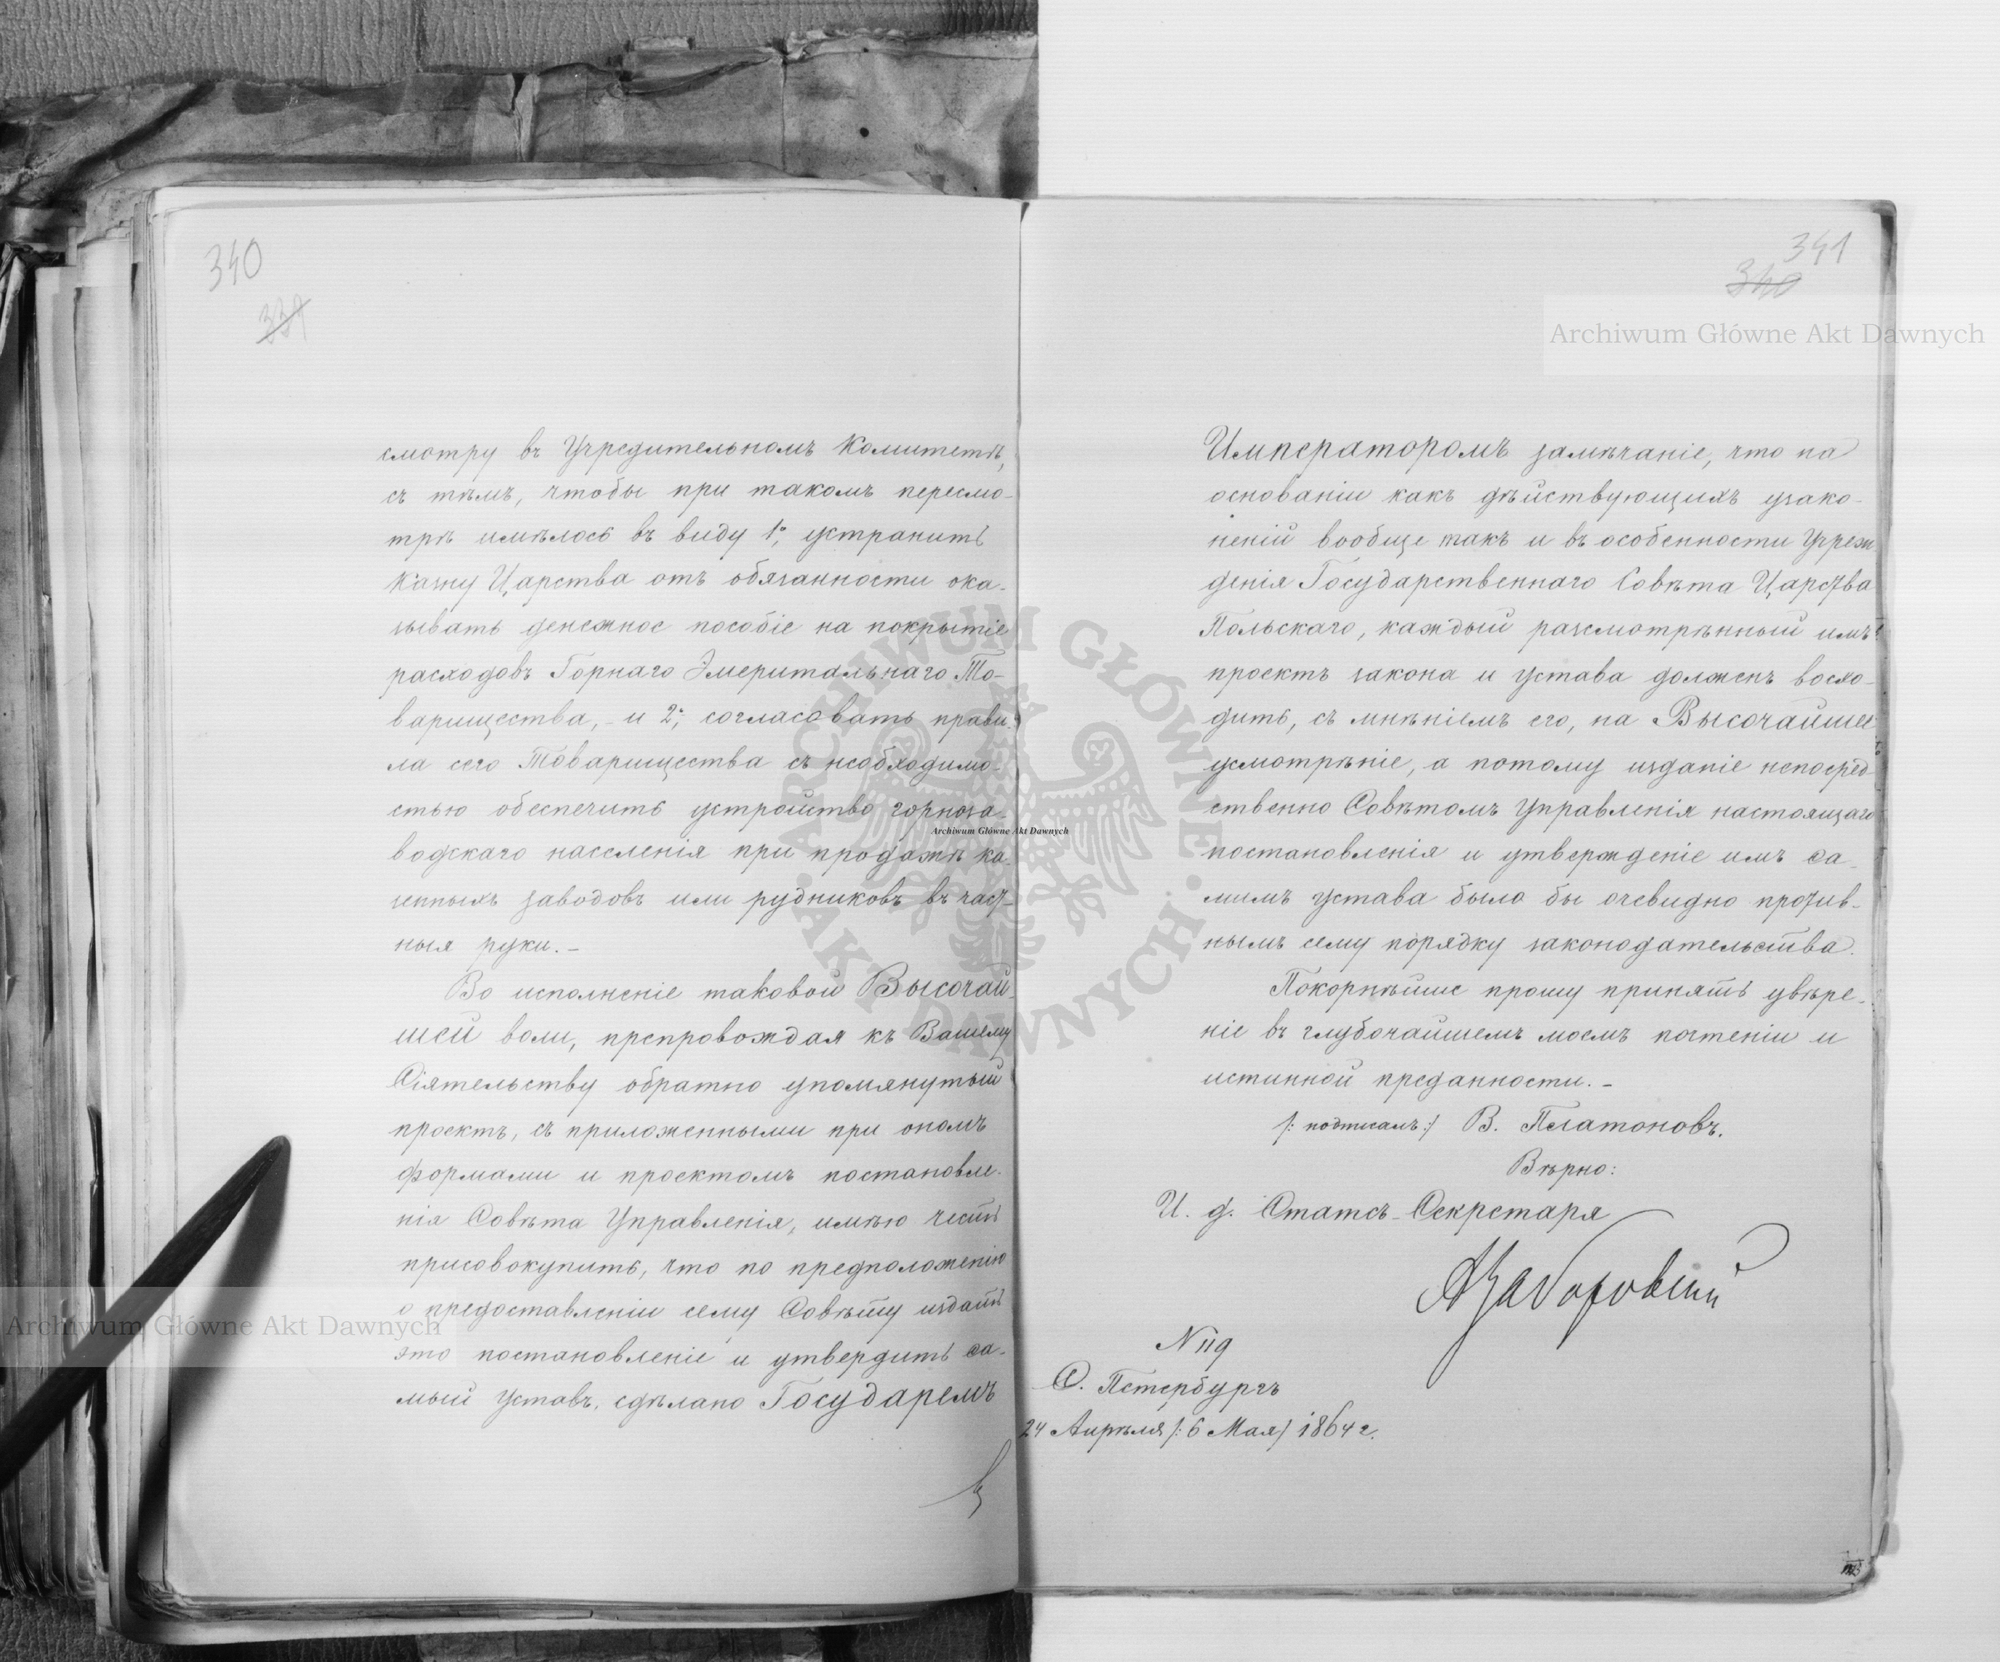 340
339
смотру въ Учредительномъ Комитетѣ,
съ тѣмъ, чтобы при такомъ пересмо-
трѣ имѣлось въ виду 1º, устранить
Казну Царства отъ обязанности ока-
зывать денежное пособіе на покрытіе
расходовъ Горнаго Эмеритальнаго То-
варищества, - и 2º, согласовать прави-
ла сего Товарищества съ необходимо-
стью обеспечить устройство горноза-
водскаго населенія при продажѣ ка-
зенныхъ заводовъ или рудниковъ въ част-
ныя руки. -
Во исполненіе таковой Высочай-
шей воли, препровождая къ Вашему
Сіятельству обратно упомянутый
проектъ, съ приложенными при ономъ
формами и проектомъ постановле-
нія Совѣта Управленія, имѣю честь
присовокупить, что по предположенію
о предоставленіи сему Совѣту издать
это постановленіе и утвердить са-
мый Уставъ, сдѣлано Государемъ
341
340
Императоромъ замѣчаніе, что на
основаніи какъ дѣйствующихъ узако-
неній вообще такъ и въ особенности Учреж
денія Государственнаго Совѣта Царства
Польскаго, каждый разсмотрѣнный имъ
проектъ закона и устава долженъ восхо-
дить, съ мнѣніемъ его, на Высочайшее
усмотрѣніе, а потому изданіе непосред-
ственно Совѣтомъ Управленія настоящаго
постановленія и утвержденіе имъ са-
мимъ устава было бы очевидно против-
нымъ сему порядку законодательства.
Покорнѣйше прошу принять увѣре-
ніе въ глубочайшемъ моемъ почтеніи и
истинной преданности. -
/: подписалъ :/ В. Платоновъ.
Вѣрно:
И. д. Статсъ-Секретаря
АЗаборовскій
N 119
С. Петербургъ
24 Апрѣля /: 6 Мая / 1864 г.
Archiwum Główne Akt Dawnych
Archiwum Główne Akt Dawnych
Archiwum Główne Akt Dawnych
· ARCHIWUM GŁÓWNE · AKT DAWNYCH ·